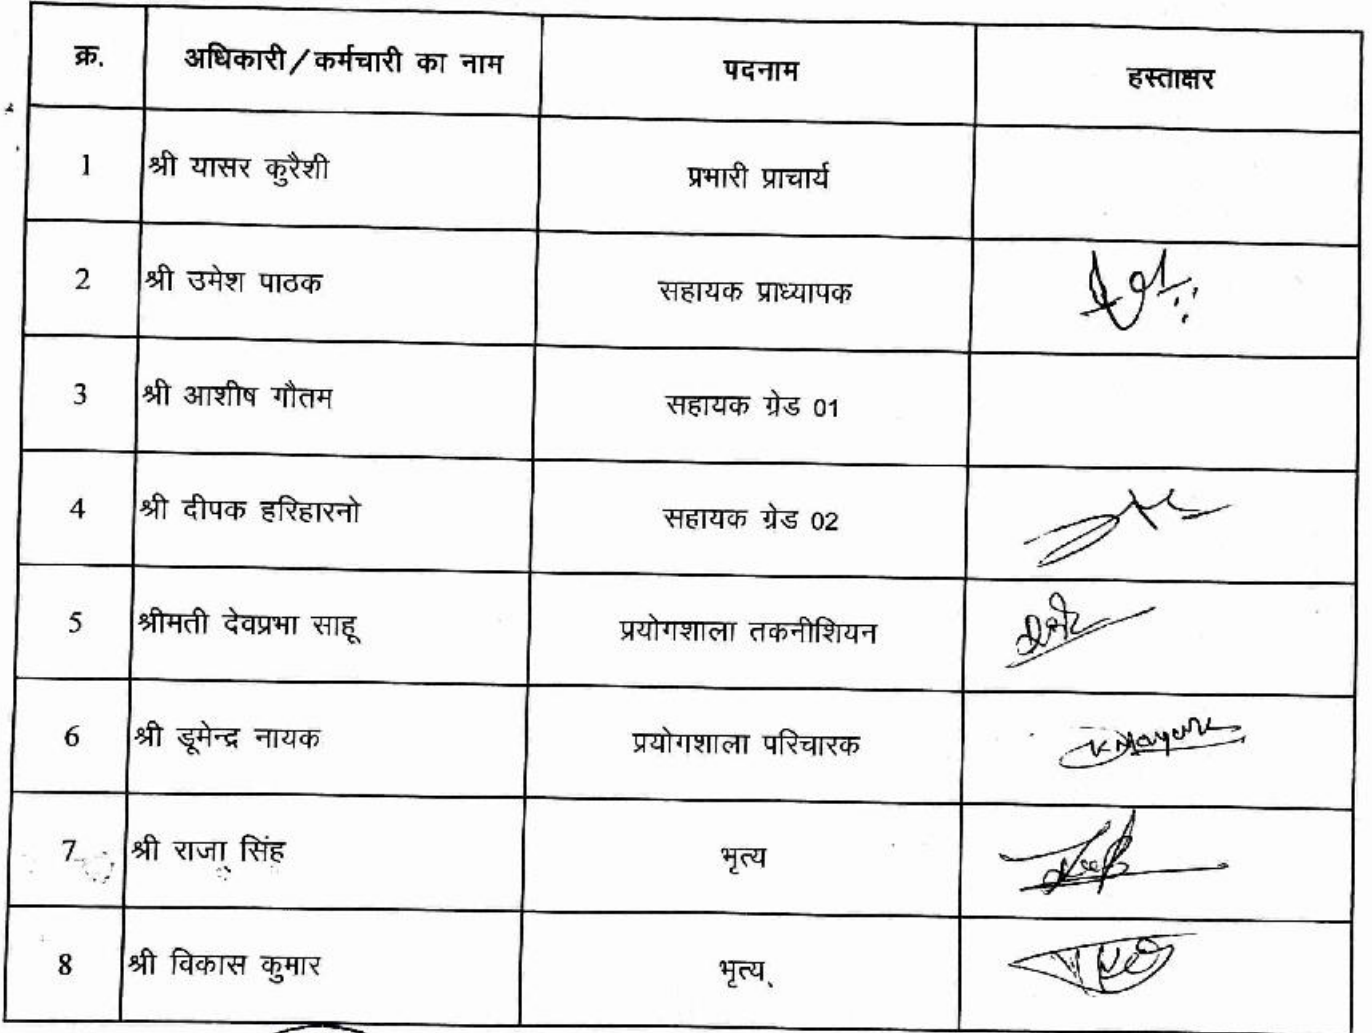 क्र. अधिकारी/कर्मचारी का नाम पदनाम हस्ताक्षर
1 श्री यासर कुरैशी प्रभारी प्राचार्य
2 श्री उमेश पाठक सहायक प्राध्यापक
3 श्री आशीष गौतम सहायक ग्रेड 01
4 श्री दीपक हरिहारनो सहायक ग्रेड 02
5 श्रीमती देवप्रभा साहू प्रयोगशाला तकनीशियन
6 श्री डूमेन्द्र नायक प्रयोगशाला परिचारक
7 श्री राजा सिंह भृत्य
8 श्री विकास कुमार भृत्य